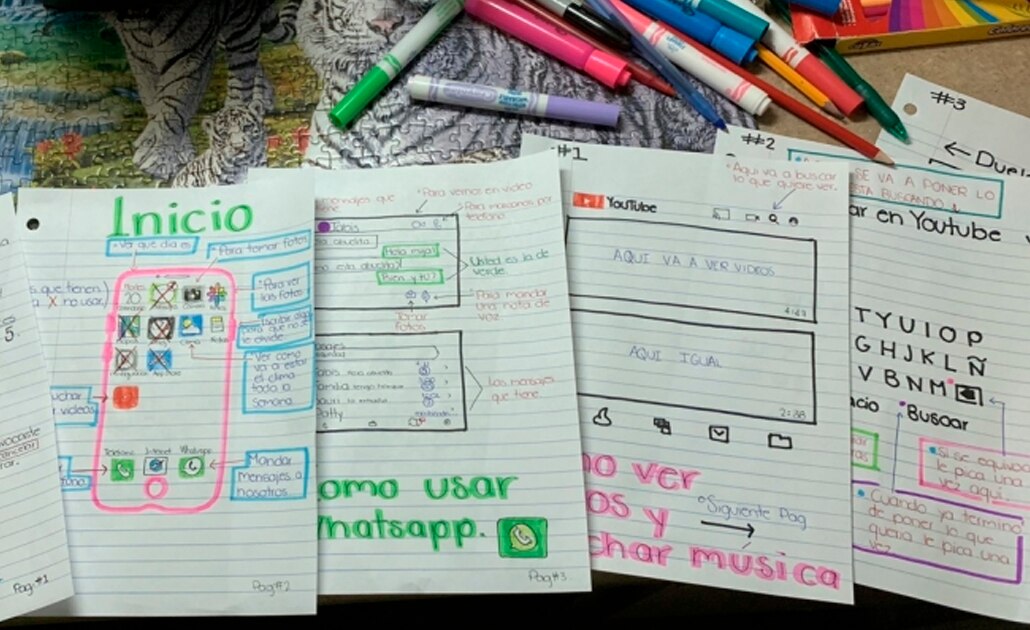 5.
Pag #1
Inicio
• Ver que dia es
• Para tomar fotos
s que tienen
X no usar.
• Para ver
las fotos
Escribir algo
para que no se
le olvide
• Ver como
va a estar
el clima
toda la
semana
uchar
videos
Telefono
Internet
Whatsapp
Mandar
Mensajes a
nosotros.
Pag #2
• Para vernos en video
• Para marcarnos por
telefono
Hola mija!
Bien y tú?
Usted es la de
verde.
• Para mandar
una nota de
voz.
Tomar
fotos
Los mensajes
que tiene
Patty
omo usar
Whatsapp.
Pag #3.
#1
• Aqui va a buscar
lo que quiere ver.
YouTube
AQUI VA A VER VIDEOS
4:47
AQUI IGUAL
2:38
no ver
os y
char música
• Siguiente Pag
#2
SE VA A PONER LO
STA BUSCANDO
ar en Youtube
TYUIOP
GHJKLÑ
VBNM
acio
• Buscar
• Si se equivoca
le pica una
vez aqui.
• Cuando ya termino
de poner lo que
queria le pica una
vez
#3
← Duel